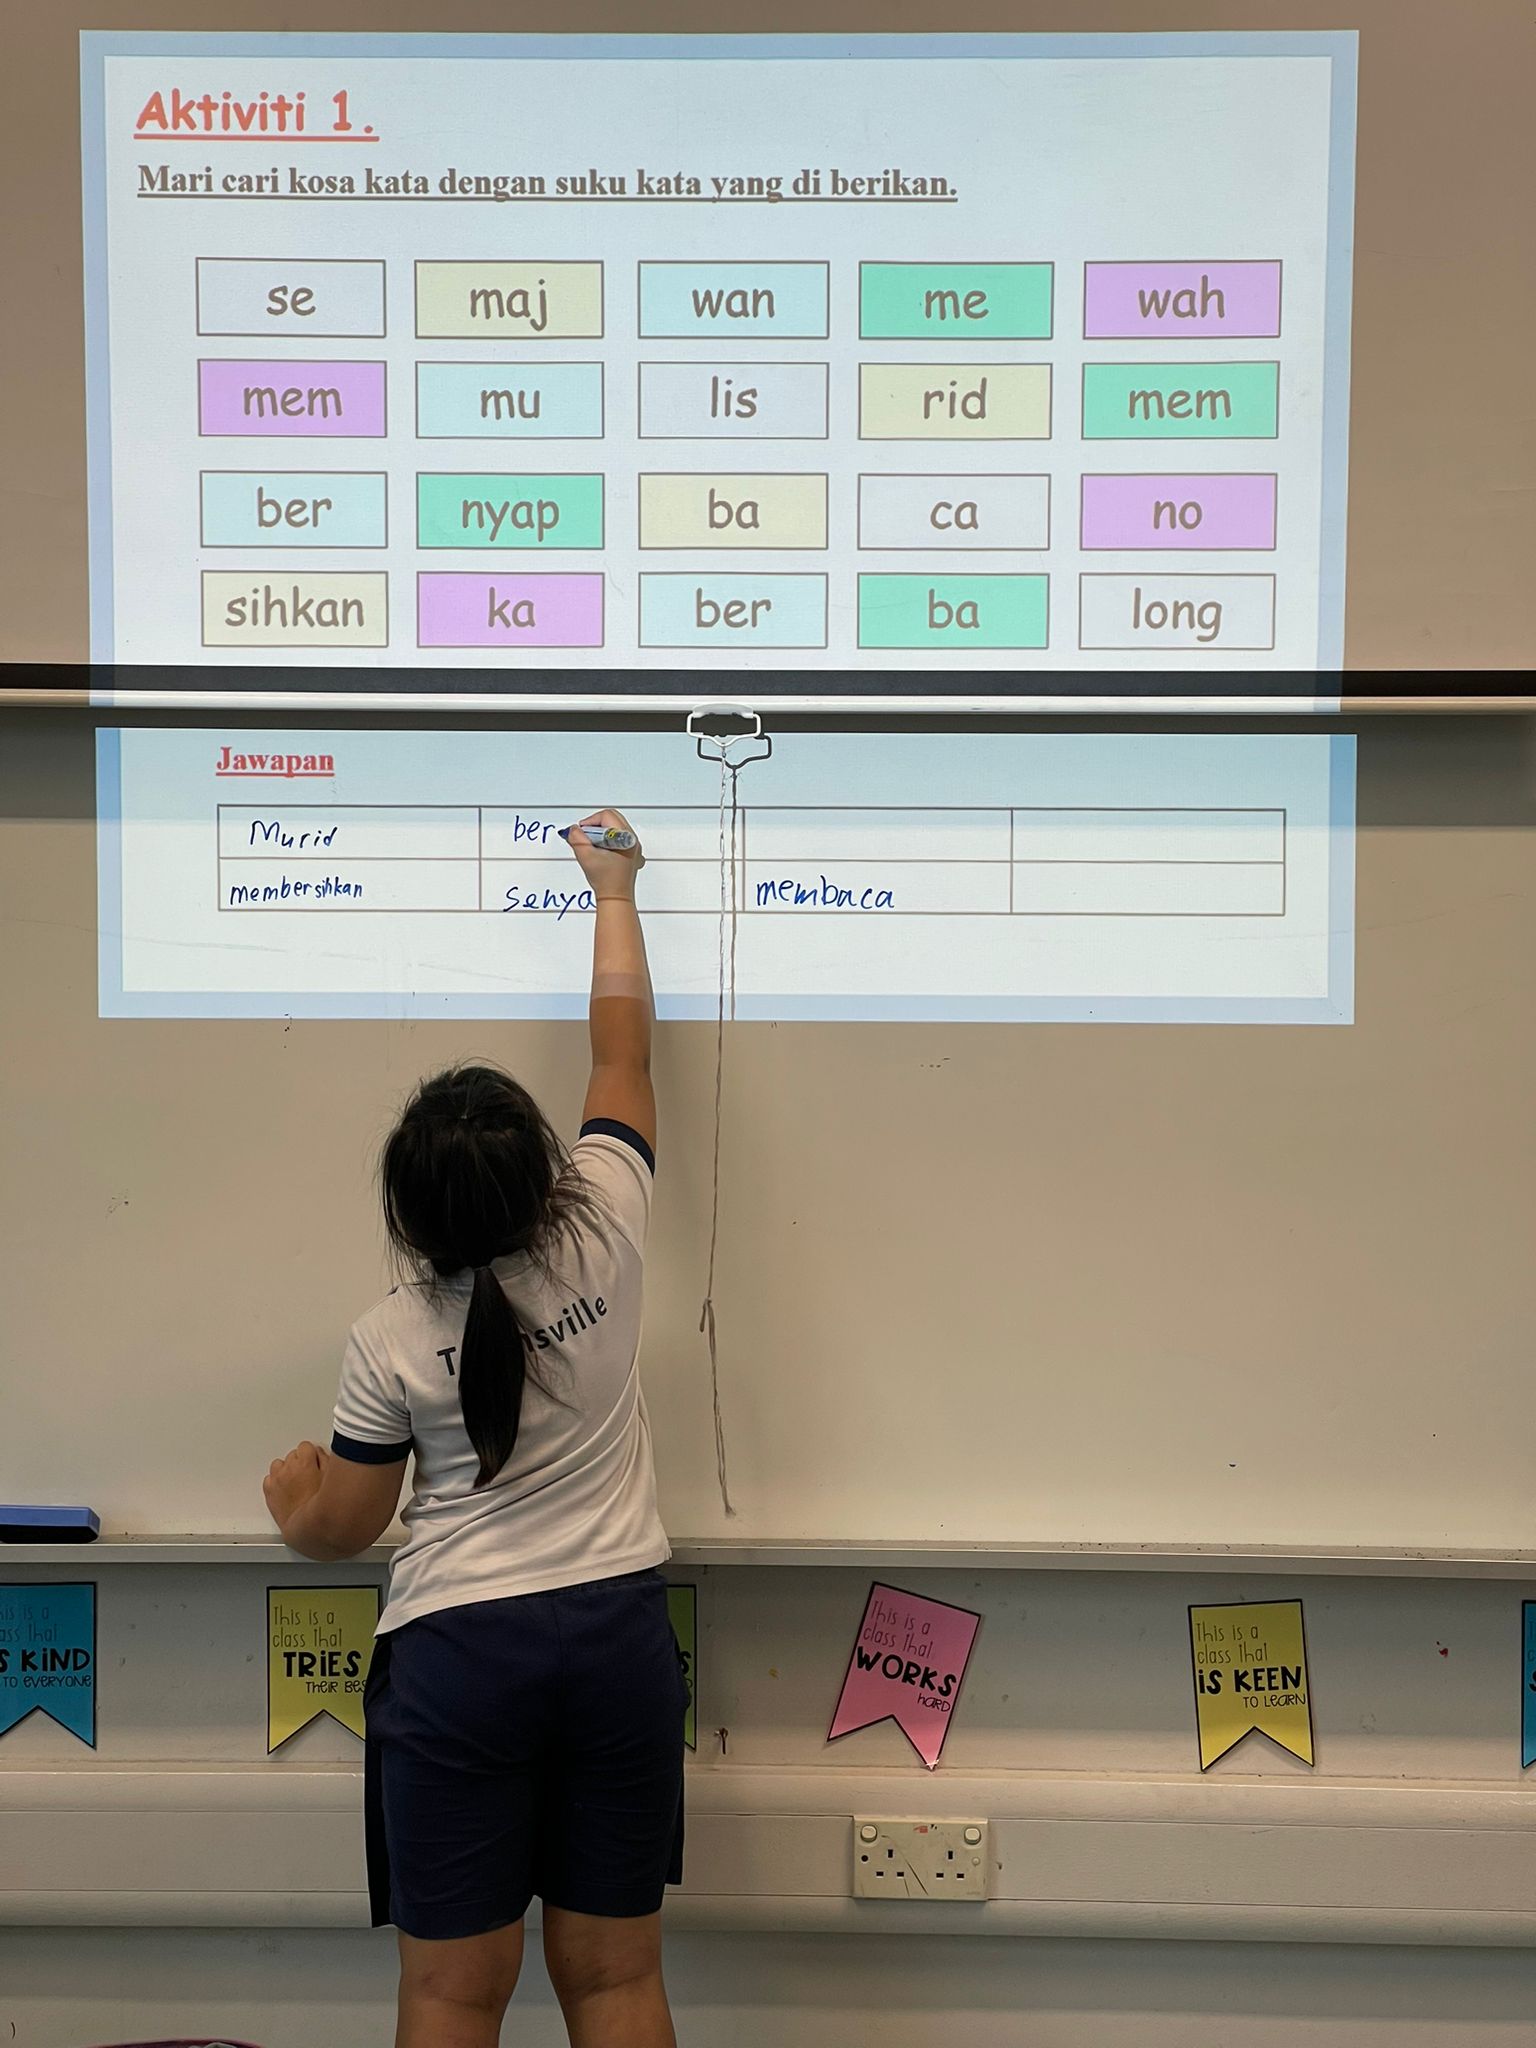 Aktiviti 1.
Mari cari kosa kata dengan suku kata yang di berikan.
se maj wan me wah
mem mu lis rid mem
ber nyap ba ca no
sihkan ka ber ba long
Jawapan
Murid ber
membersihkan senya membaca
This is a
class that
KIND
TO EVERYONE
This is a
class that
TRIES
THEIR
This is a
class that
WORKS
HARD
This is a
class that
IS KEEN
TO LEARN